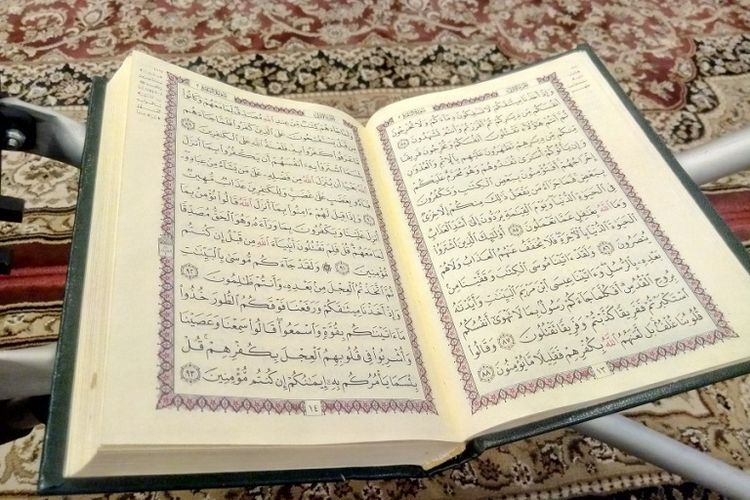 وَإِذْ أَخَذْنَا مِيثَٰقَكُمْ لَا تَسْفِكُونَ دِمَآءَكُمْ وَلَا تُخْرِجُونَ
أَنفُسَكُم مِّن دِيَٰرِكُمْ ثُمَّ أَقْرَرْتُمْ وَأَنتُمْ تَشْهَدُونَ ٨٤
ثُمَّ أَنتُمْ هَٰٓؤُلَآءِ تَقْتُلُونَ أَنفُسَكُمْ وَتُخْرِجُونَ فَرِيقًا
مِّنكُم مِّن دِيَٰرِهِمْ تَظَٰهَرُونَ عَلَيْهِم بِٱلْإِثْمِ وَٱلْعُدْوَٰنِ
وَإِن يَأْتُوكُمْ أُسَٰرَىٰ تُفَٰدُوهُمْ وَهُوَ مُحَرَّمٌ عَلَيْكُمْ
إِخْرَاجُهُمْ أَفَتُؤْمِنُونَ بِبَعْضِ ٱلْكِتَٰبِ وَتَكْفُرُونَ
بِبَعْضٍ فَمَا جَزَآءُ مَن يَفْعَلُ ذَٰلِكَ مِنكُمْ إِلَّا خِزْيٌ
فِي ٱلْحَيَوٰةِ ٱلدُّنْيَا وَيَوْمَ ٱلْقِيَٰمَةِ يُرَدُّونَ إِلَىٰٓ أَشَدِّ ٱلْعَذَابِ
وَمَا ٱللَّهُ بِغَٰفِلٍ عَمَّا تَعْمَلُونَ ٨٥ أُوْلَٰٓئِكَ ٱلَّذِينَ ٱشْتَرَوُاْ
ٱلْحَيَوٰةَ ٱلدُّنْيَا بِٱلْأٓخِرَةِ فَلَا يُخَفَّفُ عَنْهُمُ ٱلْعَذَابُ وَلَا هُمْ
يُنصَرُونَ ٨٦ وَلَقَدْ ءَاتَيْنَا مُوسَى ٱلْكِتَٰبَ وَقَفَّيْنَا مِنۢ
بَعْدِهِۦ بِٱلرُّسُلِ وَءَاتَيْنَا عِيسَى ٱبْنَ مَرْيَمَ ٱلْبَيِّنَٰتِ وَأَيَّدْنَٰهُ
بِرُوحِ ٱلْقُدُسِ أَفَكُلَّمَا جَآءَكُمْ رَسُولٌۢ بِمَا لَا تَهْوَىٰٓ أَنفُسُكُمُ
ٱسْتَكْبَرْتُمْ فَفَرِيقًا كَذَّبْتُمْ وَفَرِيقًا تَقْتُلُونَ ٨٧ وَقَالُواْ
قُلُوبُنَا غُلْفٌۢ بَل لَّعَنَهُمُ ٱللَّهُ بِكُفْرِهِمْ فَقَلِيلًا مَّا يُؤْمِنُونَ ٨٨
١٣
وَلَمَّا جَآءَهُمْ كِتَٰبٌ مِّنْ عِندِ ٱللَّهِ مُصَدِّقٌ لِّمَا مَعَهُمْ وَكَانُواْ
مِن قَبْلُ يَسْتَفْتِحُونَ عَلَى ٱلَّذِينَ كَفَرُواْ فَلَمَّا جَآءَهُم مَّا
عَرَفُواْ كَفَرُواْ بِهِۦ فَلَعْنَةُ ٱللَّهِ عَلَى ٱلْكَٰفِرِينَ ٨٩
بِئْسَمَا ٱشْتَرَوْاْ بِهِۦٓ أَنفُسَهُمْ أَن يَكْفُرُواْ بِمَآ أَنزَلَ
ٱللَّهُ بَغْيًا أَن يُنَزِّلَ ٱللَّهُ مِن فَضْلِهِۦ عَلَىٰ مَن يَشَآءُ مِنْ عِبَادِهِۦ
فَبَآءُو بِغَضَبٍ عَلَىٰ غَضَبٍ وَلِلْكَٰفِرِينَ عَذَابٌ مُّهِينٌ
٩٠ وَإِذَا قِيلَ لَهُمْ ءَامِنُواْ بِمَآ أَنزَلَ ٱللَّهُ قَالُواْ نُؤْمِنُ بِمَآ
أُنزِلَ عَلَيْنَا وَيَكْفُرُونَ بِمَا وَرَآءَهُۥ وَهُوَ ٱلْحَقُّ مُصَدِّقًا
لِّمَا مَعَهُمْ قُلْ فَلِمَ تَقْتُلُونَ أَنۢبِيَآءَ ٱللَّهِ مِن قَبْلُ إِن كُنتُم
مُّؤْمِنِينَ ٩١ وَلَقَدْ جَآءَكُم مُّوسَىٰ بِٱلْبَيِّنَٰتِ
ثُمَّ ٱتَّخَذْتُمُ ٱلْعِجْلَ مِنۢ بَعْدِهِۦ وَأَنتُمْ ظَٰلِمُونَ ٩٢
وَإِذْ أَخَذْنَا مِيثَٰقَكُمْ وَرَفَعْنَا فَوْقَكُمُ ٱلطُّورَ خُذُواْ
مَآ ءَاتَيْنَٰكُم بِقُوَّةٍ وَٱسْمَعُواْ قَالُواْ سَمِعْنَا وَعَصَيْنَا
وَأُشْرِبُواْ فِي قُلُوبِهِمُ ٱلْعِجْلَ بِكُفْرِهِمْ قُلْ
بِئْسَمَا يَأْمُرُكُم بِهِۦٓ إِيمَٰنُكُمْ إِن كُنتُم مُّؤْمِنِينَ ٩٣
١٤